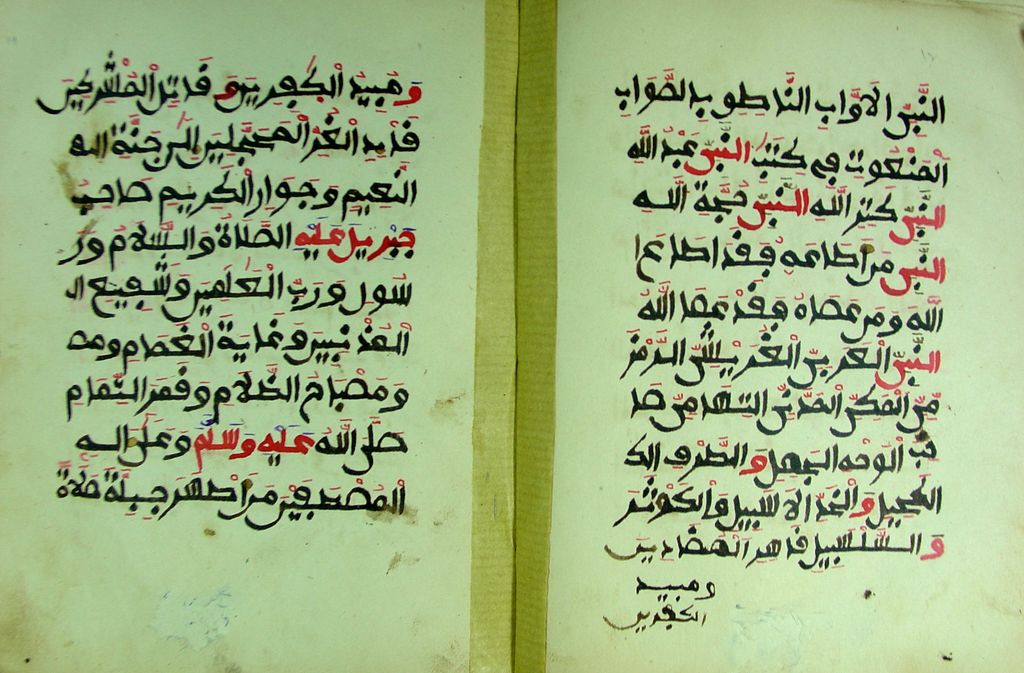 النبى الاواب الناطق بالصواب
المنعوت في كتب النبى عبد الله
النبى كنز الله النبى حجة الله
النبى من اطاعه فقد اطاع ا
الله ومن عصاه فقد عصا الله
النبى العربى القرشى الزمز
مى المكى المدنى التهامى صا
حب الوجه الجميل والطرف الك
الكحيل والخد الاسيل والكوثر
والسلسبيل قاهر المضادين
ومبيد
الكفرين
ومبيد الكفرين وقاتل المشركين
قايد الغر المحجلين الى جنة
النعيم وجوار الكريم صاحب
جبريل عليه الصلاة والسلام ور
سول ورب العلمين وشفيع ا
المذنبين وغاية الغمام ومص
ومصباح الظلام وقمر التمام
صلى الله عليه وسلم وعلى اله
المصطفين من اطهر جبلة صلاة